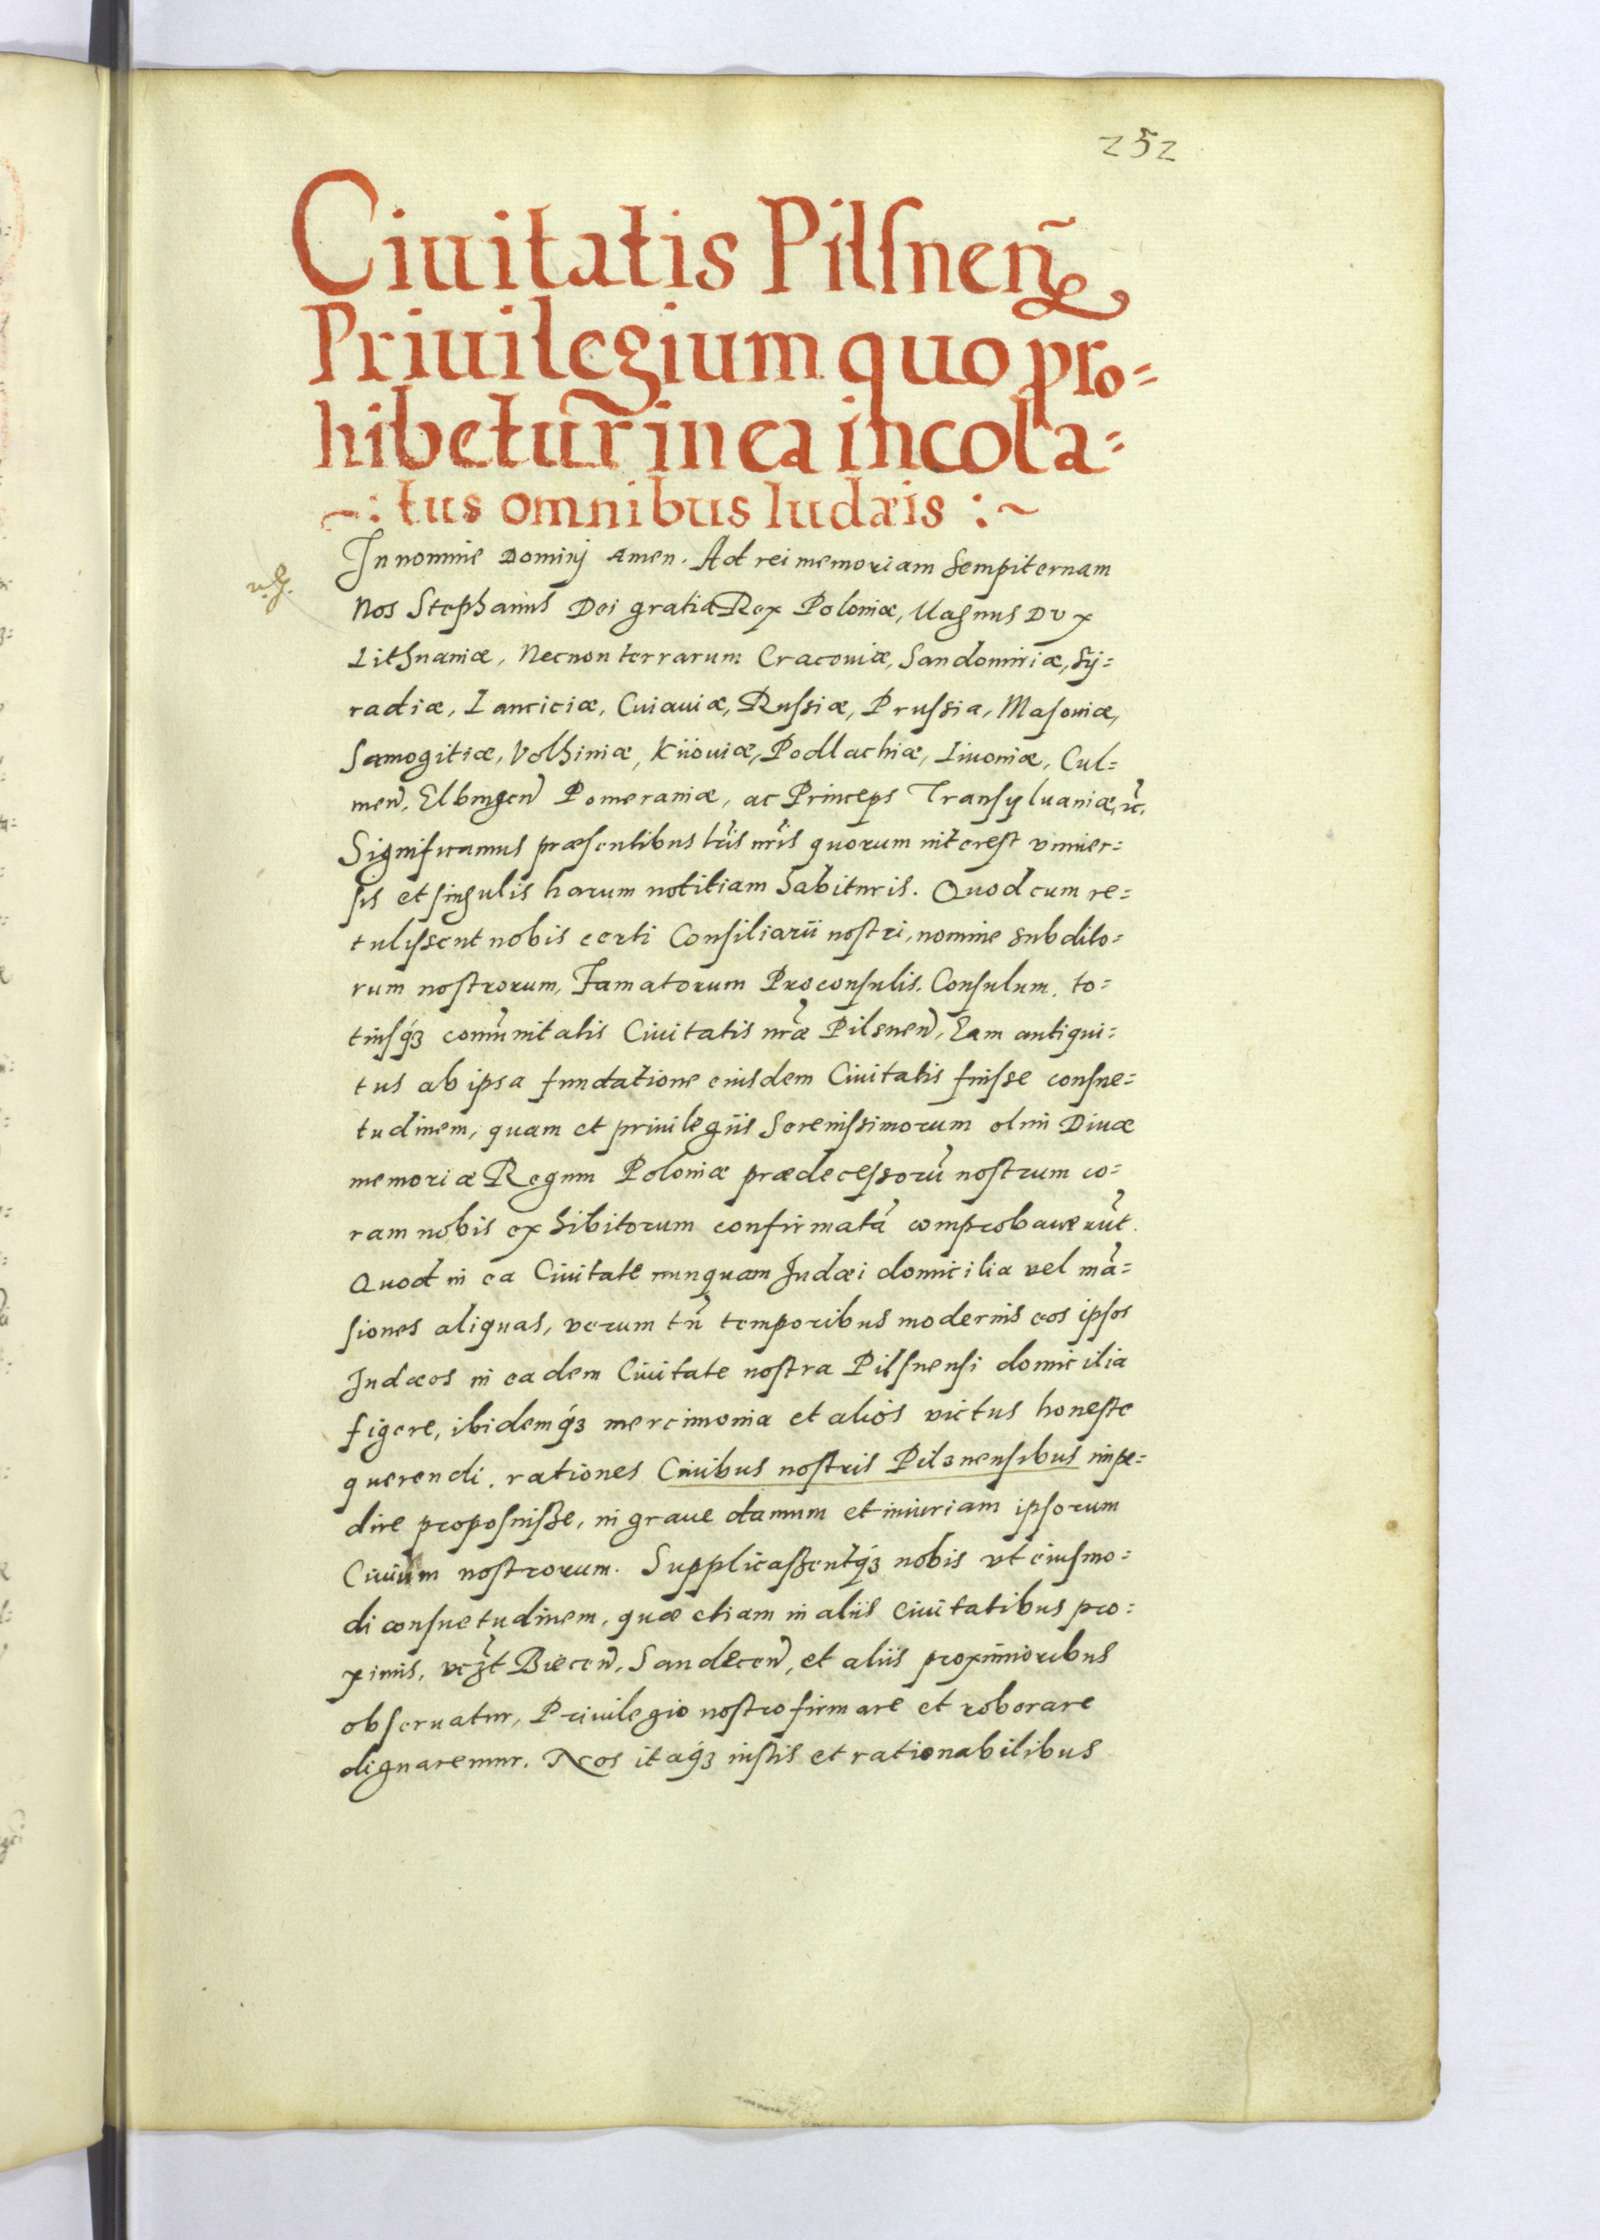 252
Ciuitatis Pilsnen̄
Priuilegium quo pro=
hibetur in ea incola=
~: tus omnibus Iudæis :~
In nomine Dominj Amen. Ad rei memoriam sempiternam
Nos Stephanus Dei gratia Rex Poloniæ, Magnus Dux
Lithuaniæ, Necnon terrarum Cracouiæ, Sandomiriæ, Sy=
radiæ, Lanciciæ, Cuiauiæ, Russiæ, Prussiæ, Masouiæ,
Samogitiæ, Volhiniæ, Kiiouiæ, Podlachiæ, Liuoniæ, Cul=
men̄, Elbingen̄ Pomeraniæ, ac Princeps Transyluaniæ, ꝛc̄.
Significamus præsentibus lr̄is nr̄is quorum interest vniuer=
sis et singulis harum notitiam habituris. Quod cum re=
tulissent nobis certi Consiliarii nostri, nomine subdito=
rum nostrorum, Famatorum Proconsulis. Consulum, to=
tiusq́ꝫ com̄unitatis Ciuitatis nr̄æ Pilsnen̄, Eam antiqui=
tus ab ipsa fundatione eiusdem Ciuitatis fuisse consue=
tudinem, quam et priuilegiis Serenissimorum olim Diuæ
memoriæ Regum Poloniæ prædecessorū nostrum co=
ram nobis exhibitorum confirmatā comprobauerūt.
Quod in ea Ciuitate nunquam Judæi domicilia vel mā=
siones aliquas, verum tn̄ temporibus modernis eos ipsos
Judæos in eadem Ciuitate nostra Pilsnensi domicilia
figere, ibidemq́ꝫ mercimonia et alios victus honeste
querendi. rationes Ciuibus nostris Pilsnensibus impe=
dire proposuisse, in graue damnum et iniuriam ipsorum
Ciuium nostrorum. Supplicassentq́ꝫ nobis vt eiusmo=
di consuetudinem, quæ etiam in aliis ciuitatibus pro=
ximis, vꝫt̄ Biecen̄, Sandecen̄, et aliis proximioribus
obseruatur, Priuilegio nostro firmare et roborare
dignaremur. Nos itaq́ꝫ iustis et rationabilibus